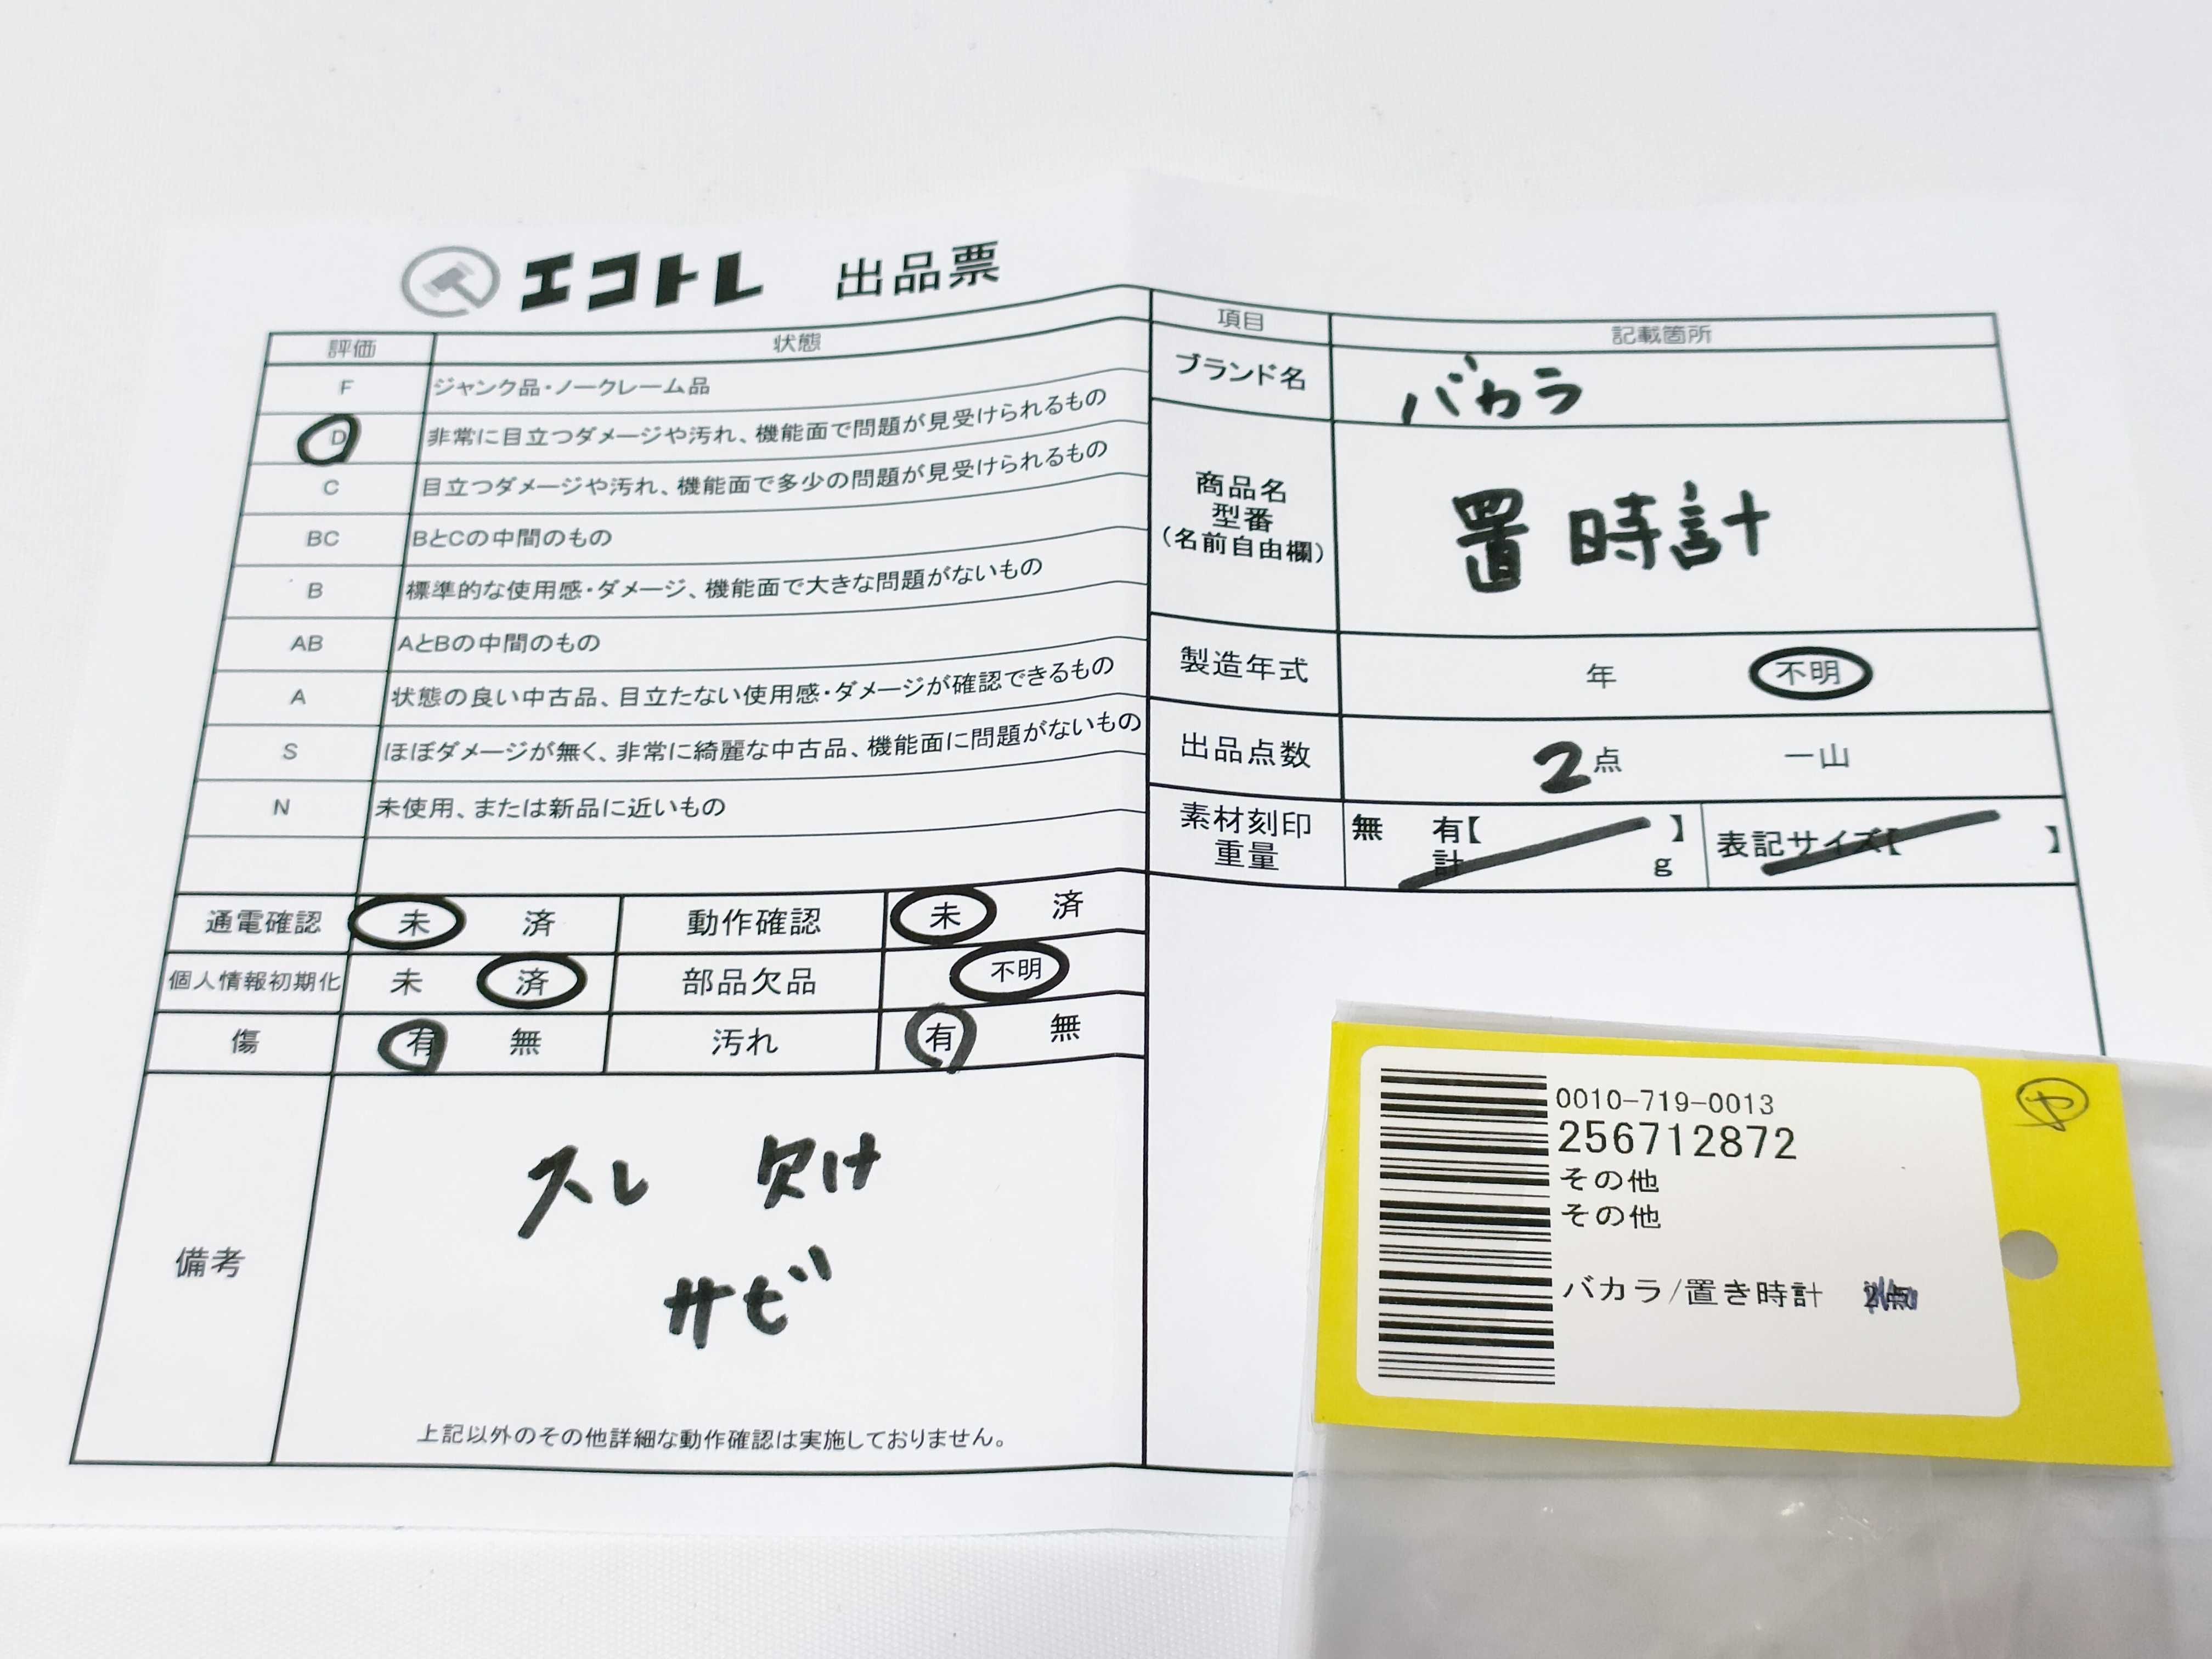 エコトレ 出品票
評価 状態
F ジャンク品・ノークレーム品
D 非常に目立つダメージや汚れ、機能面で問題が見受けられるもの
C 目立つダメージや汚れ、機能面で多少の問題が見受けられるもの
BC BとCの中間のもの
B 標準的な使用感・ダメージ、機能面で大きな問題がないもの
AB AとBの中間のもの
A 状態の良い中古品、目立たない使用感・ダメージが確認できるもの
S ほぼダメージが無く、非常に綺麗な中古品、機能面に問題がないもの
N 未使用、または新品に近いもの
通電確認 未 済 動作確認 未 済
個人情報初期化 未 済 部品欠品 不明
傷 有 無 汚れ 有 無
備考
スレ 欠け
サビ
上記以外のその他詳細な動作確認は実施しておりません。
項目 記載箇所
ブランド名 バカラ
商品名
型番
(名前自由欄)
置時計
製造年式 年 不明
出品点数 2点 一山
素材刻印
重量
無 有【 】
計 g
表記サイズ【 】
0010-719-0013
256712872
その他
その他
バカラ/置き時計
ヤ